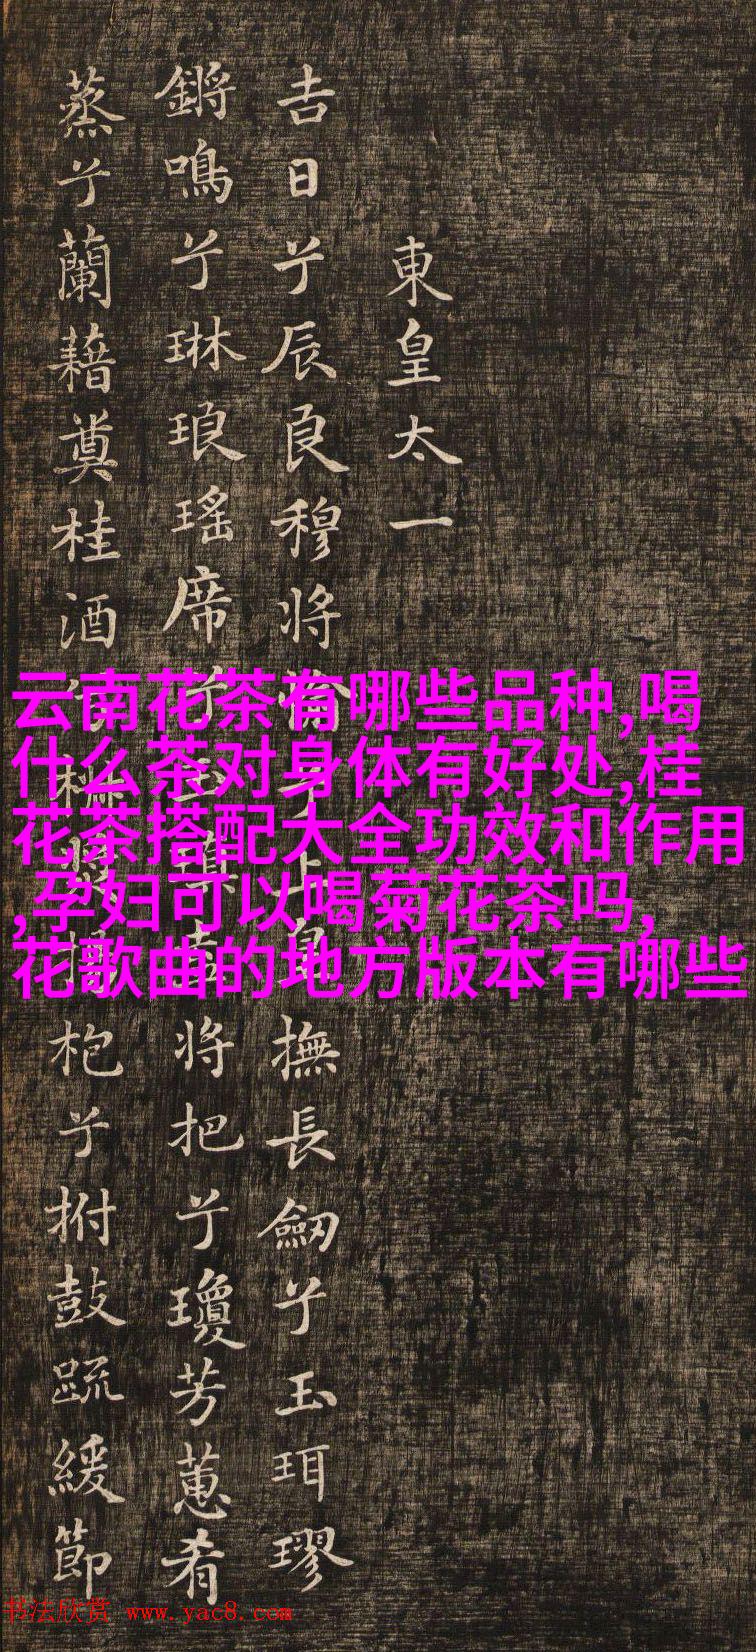 東皇太一
吉日兮辰良穆将愉兮上皇撫長劔兮玉珥璆
鏘鳴兮琳琅瑤席兮玉瑱盍将把兮瓊芳蕙肴
蒸兮蘭藉奠桂酒兮椒漿揚枹兮拊鼓疏緩節
云南花茶有哪些品种,喝
什么茶对身体有好处,桂
花茶搭配大全功效和作用
,孕妇可以喝菊花茶吗,
花歌曲的地方版本有哪些
书法欣赏 www.yac8.com